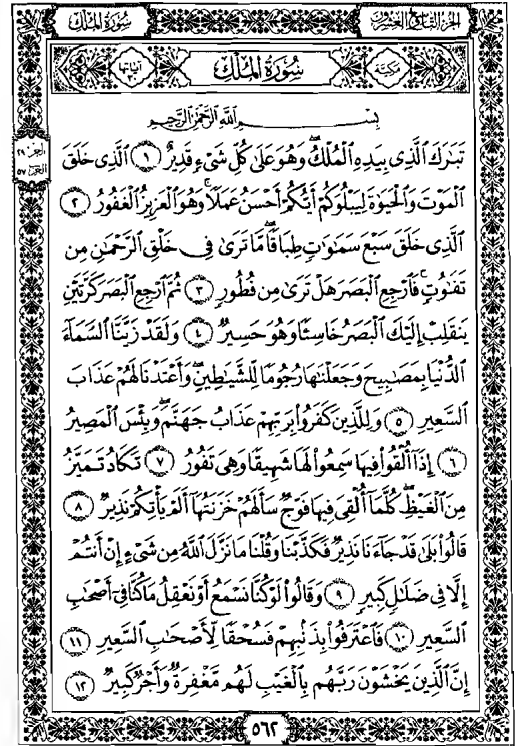 سُورَةُ المُلْك
الجزء التاسع والعشرون
سُورَةُ المُلْكِ
مكيّة
آياتها
بِسْمِ اللَّهِ الرَّحْمَٰنِ الرَّحِيمِ
تَبَٰرَكَ ٱلَّذِى بِيَدِهِ ٱلْمُلْكُ وَهُوَ عَلَىٰ كُلِّ شَىْءٍ قَدِيرٌ ١ ٱلَّذِى خَلَقَ
الجزء ٢٩
الحزب ٥٧
ٱلْمَوْتَ وَٱلْحَيَوٰةَ لِيَبْلُوَكُمْ أَيُّكُمْ أَحْسَنُ عَمَلًا ۚ وَهُوَ ٱلْعَزِيزُ ٱلْغَفُورُ ٢
ٱلَّذِى خَلَقَ سَبْعَ سَمَٰوَٰتٍ طِبَاقًا ۖ مَّا تَرَىٰ فِى خَلْقِ ٱلرَّحْمَٰنِ مِن
تَفَٰوُتٍ ۖ فَٱرْجِعِ ٱلْبَصَرَ هَلْ تَرَىٰ مِن فُطُورٍ ٣ ثُمَّ ٱرْجِعِ ٱلْبَصَرَ كَرَّتَيْنِ
يَنقَلِبْ إِلَيْكَ ٱلْبَصَرُ خَاسِئًا وَهُوَ حَسِيرٌ ٤ وَلَقَدْ زَيَّنَّا ٱلسَّمَآءَ
ٱلدُّنْيَا بِمَصَٰبِيحَ وَجَعَلْنَٰهَا رُجُومًا لِّلشَّيَٰطِينِ ۖ وَأَعْتَدْنَا لَهُمْ عَذَابَ
ٱلسَّعِيرِ ٥ وَلِلَّذِينَ كَفَرُوا۟ بِرَبِّهِمْ عَذَابُ جَهَنَّمَ ۖ وَبِئْسَ ٱلْمَصِيرُ
٦ إِذَآ أُلْقُوا۟ فِيهَا سَمِعُوا۟ لَهَا شَهِيقًا وَهِىَ تَفُورُ ٧ تَكَادُ تَمَيَّزُ
مِنَ ٱلْغَيْظِ ۖ كُلَّمَآ أُلْقِىَ فِيهَا فَوْجٌ سَأَلَهُمْ خَزَنَتُهَآ أَلَمْ يَأْتِكُمْ نَذِيرٌ ٨
قَالُوا۟ بَلَىٰ قَدْ جَآءَنَا نَذِيرٌ فَكَذَّبْنَا وَقُلْنَا مَا نَزَّلَ ٱللَّهُ مِن شَىْءٍ إِنْ أَنتُمْ
إِلَّا فِى ضَلَٰلٍ كَبِيرٍ ٩ وَقَالُوا۟ لَوْ كُنَّا نَسْمَعُ أَوْ نَعْقِلُ مَا كُنَّا فِىٓ أَصْحَٰبِ
ٱلسَّعِيرِ ١٠ فَٱعْتَرَفُوا۟ بِذَنۢبِهِمْ فَسُحْقًا لِّأَصْحَٰبِ ٱلسَّعِيرِ ١١
إِنَّ ٱلَّذِينَ يَخْشَوْنَ رَبَّهُم بِٱلْغَيْبِ لَهُم مَّغْفِرَةٌ وَأَجْرٌ كَبِيرٌ ١٢
٥٦٢